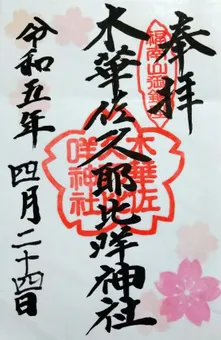 奉拝
木華佐久耶比咩神社
木華佐
久耶比
咩神社
令和五年
四月二十四日